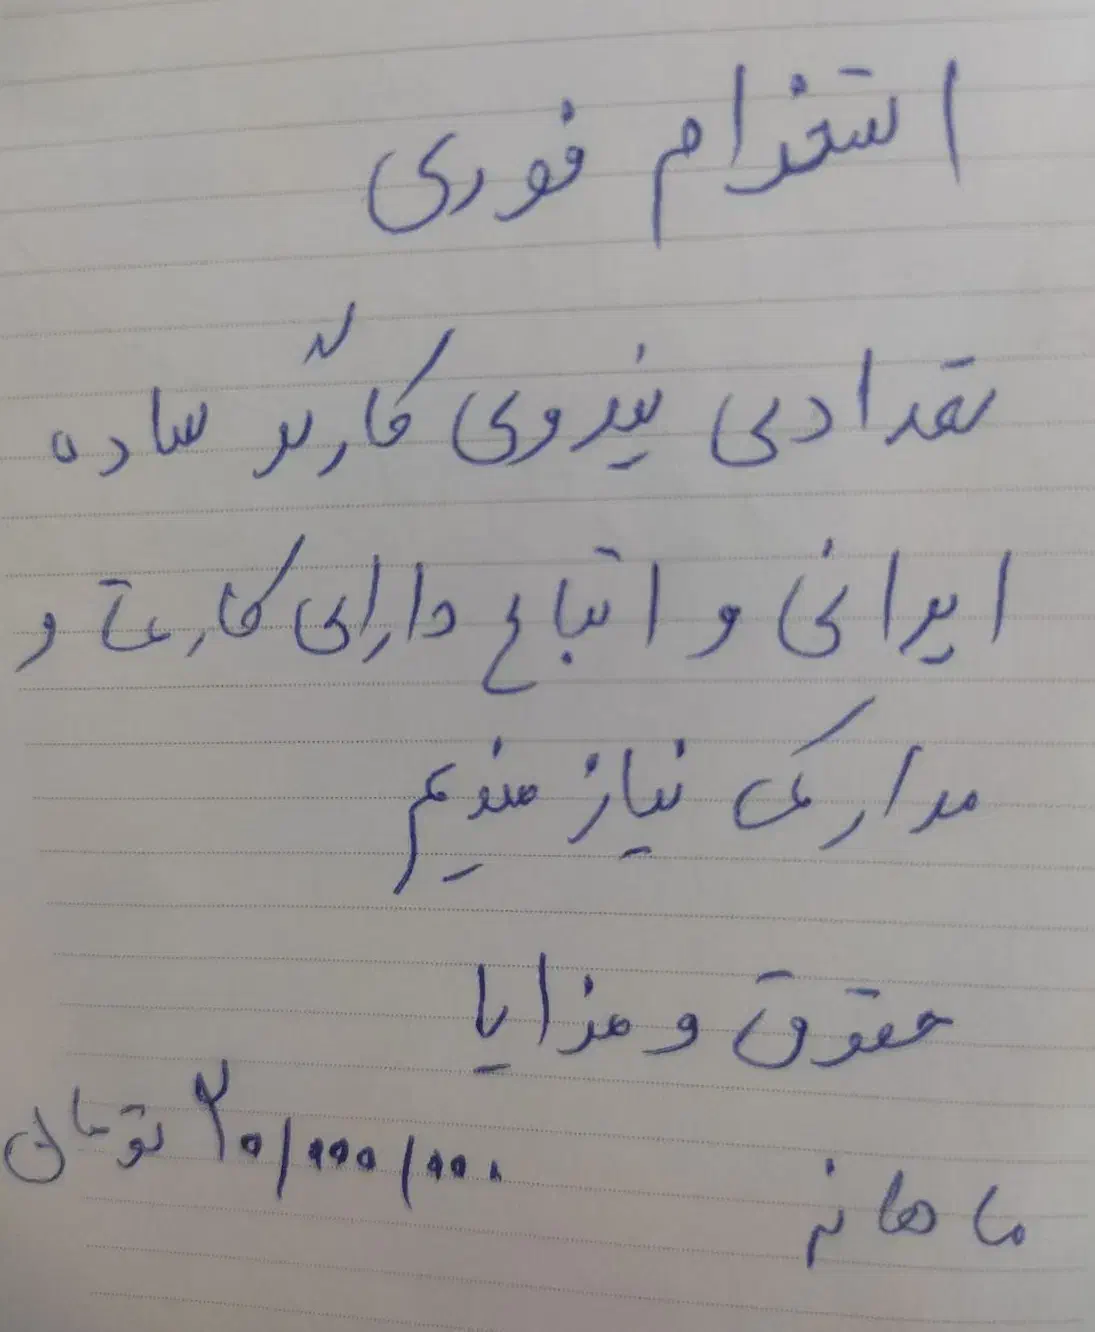 استخدام فوری
تعدادی نیروی کارگر ساده
ایرانی و اتباع دارای کارت و
مدارک نیازمندیم
حقوق و مزایا
ماهانه ۲۰/۰۰۰/۰۰۰ تومان